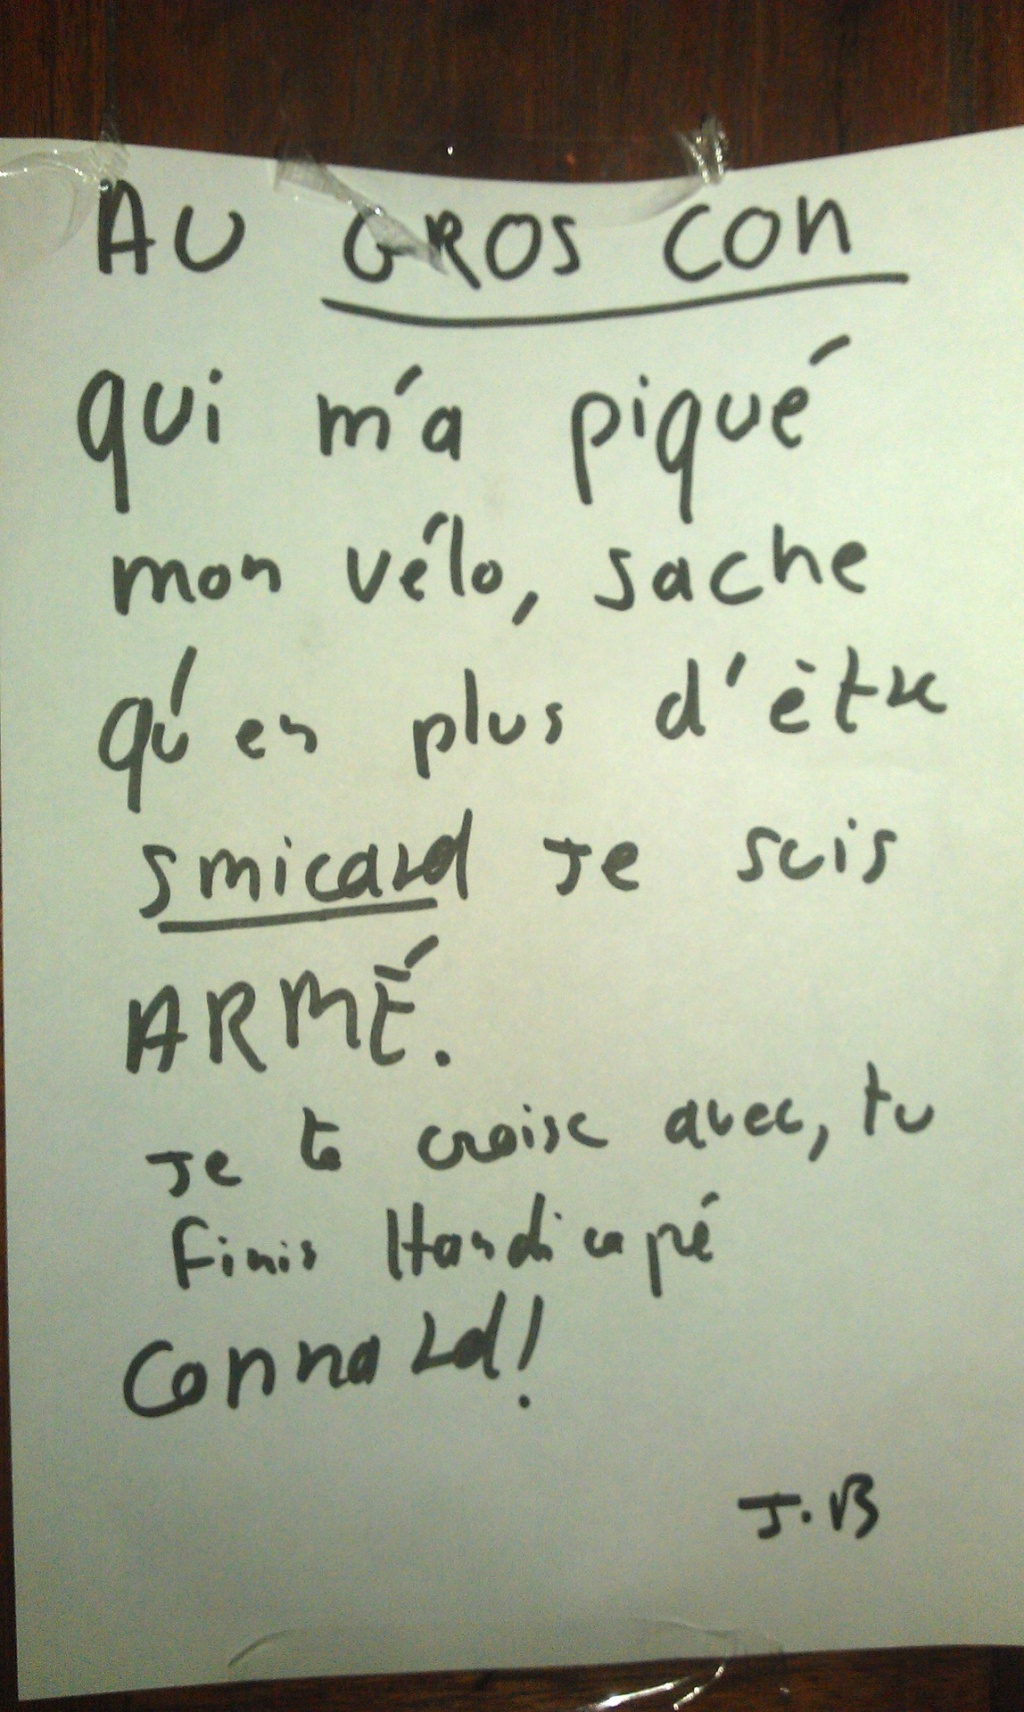 AU GROS CON
qui m'a piqué
mon vélo, sache
qu'en plus d'être
smicard Je suis
ARMÉ.
Je te croise avec, tu
finis Handicapé
Connard!
J.B